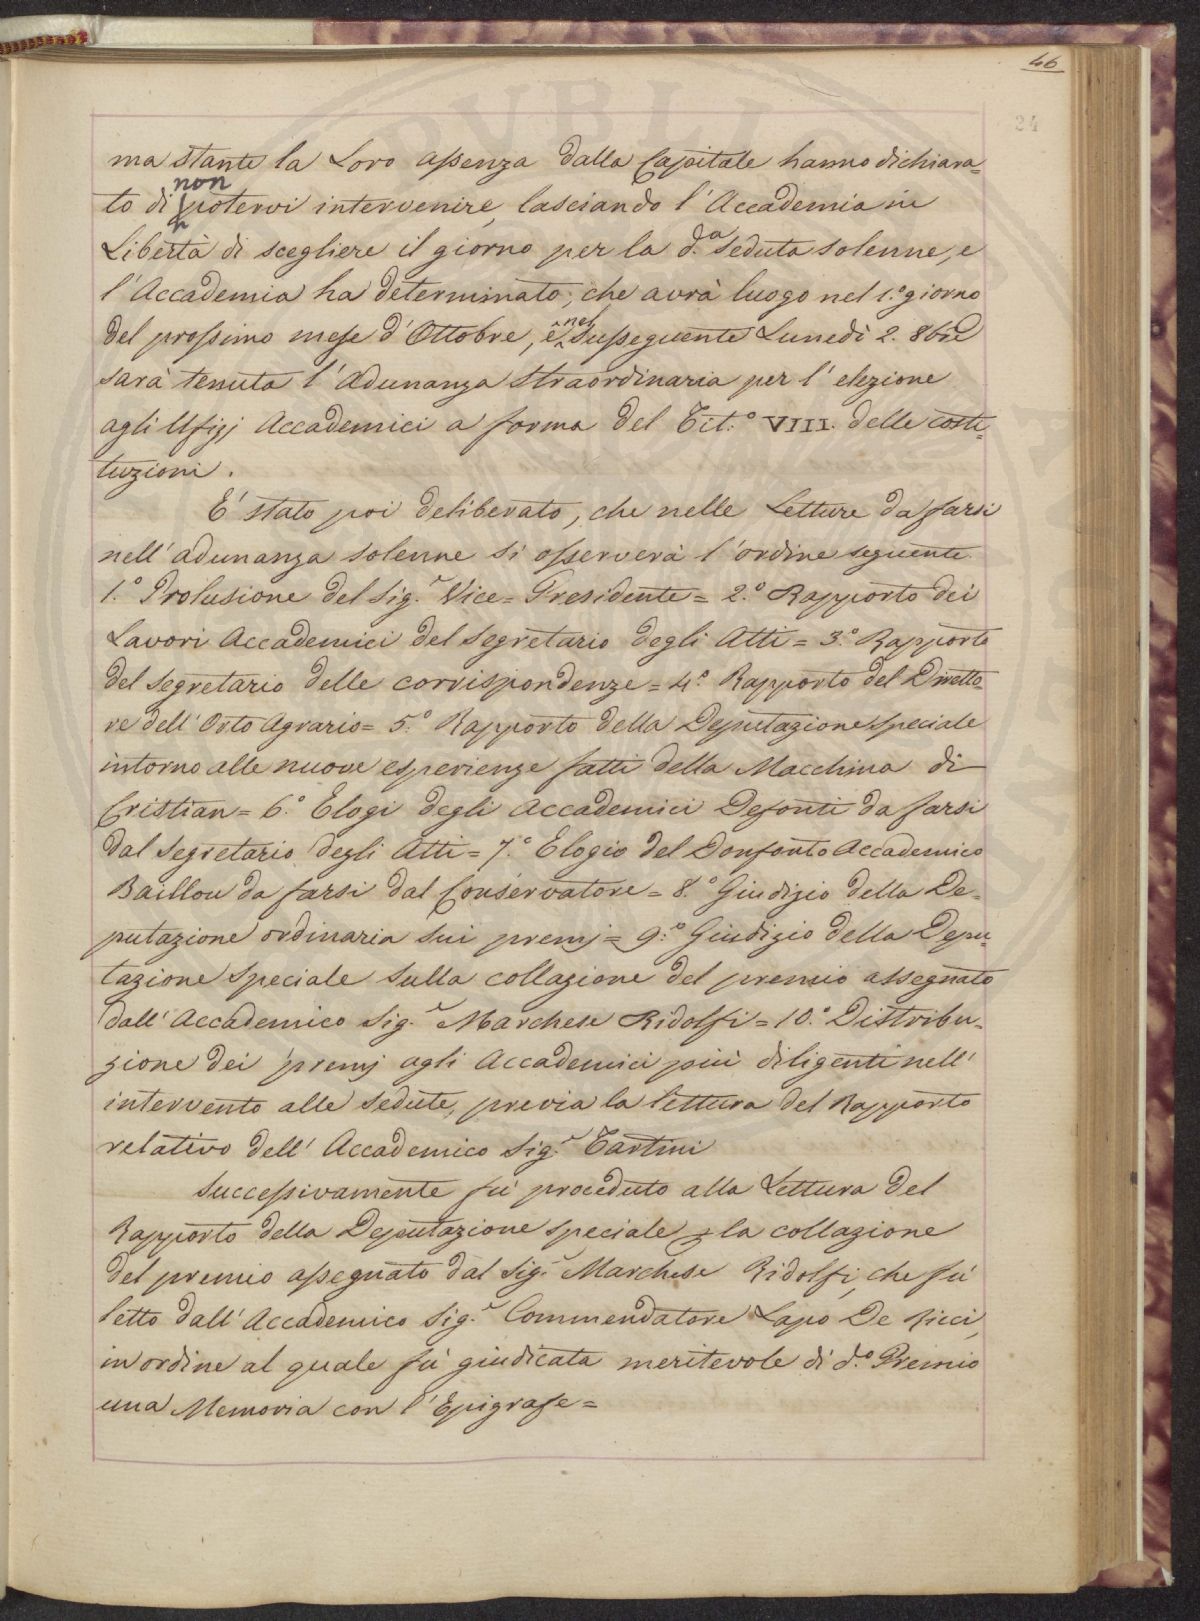 46
24
ma stante la Loro assenza dalla Capitale hanno dichiara=
to di non potervi intervenire, lasciando l'Accademia in
Libertà di scegliere il giorno per la d.a seduta solenne, e
l'Accademia ha determinato, che avrà luogo nel 1.o giorno
del prossimo mese d'Ottobre, e nel susseguente Lunedì 2. 8bre
sarà tenuta l'adunanza straordinaria per l'elezione
agli Ufizj Accademici a forma del Tit.o VIII. delle costi=
tuzioni.
É stato poi deliberato, che nelle Letture da farsi
nell'adunanza solenne si osserverà l'ordine seguente
1.o Prolusione del Sig.r Vice=Presidente = 2.o Rapporto dei
Lavori Accademici del Segretario degli Atti = 3.o Rapporto
del Segretario delle corrispondenze = 4.o Rapporto del Diretto=
re dell'Orto Agrario = 5.o Rapporto della Deputazione speciale
intorno alle nuove esperienze fatti della Macchina di
Cristian = 6.o Elogi degli Accademici Defonti da farsi
dal Segretario degli Atti = 7.o Elogio del Donfonto Accademico
Baillou da farsi dal Conservatore = 8.o Giudizio della De=
putazione ordinaria sui premj = 9.o Giudizio della Depu=
tazione speciale sulla collazione del premio assegnato
dall'Accademico Sig.r Marchese Ridolfi = 10.o Distribu=
zione dei premj agli Accademici più diligenti nell'
intervento alle sedute, previa la lettura del Rapporto
relativo dell'Accademico Sig.r Tartini
Successivamente fù proceduto alla Lettura del
Rapporto della Deputazione speciale p la collazione
del premio assegnato dal Sig.r Marchese Ridolfi, che fù
letto dall'Accademico Sig.r Commendatore Lapo De Ricci,
in ordine al quale fù giudicata meritevole di d.o Premio
una Memoria con l'Epigrafe =